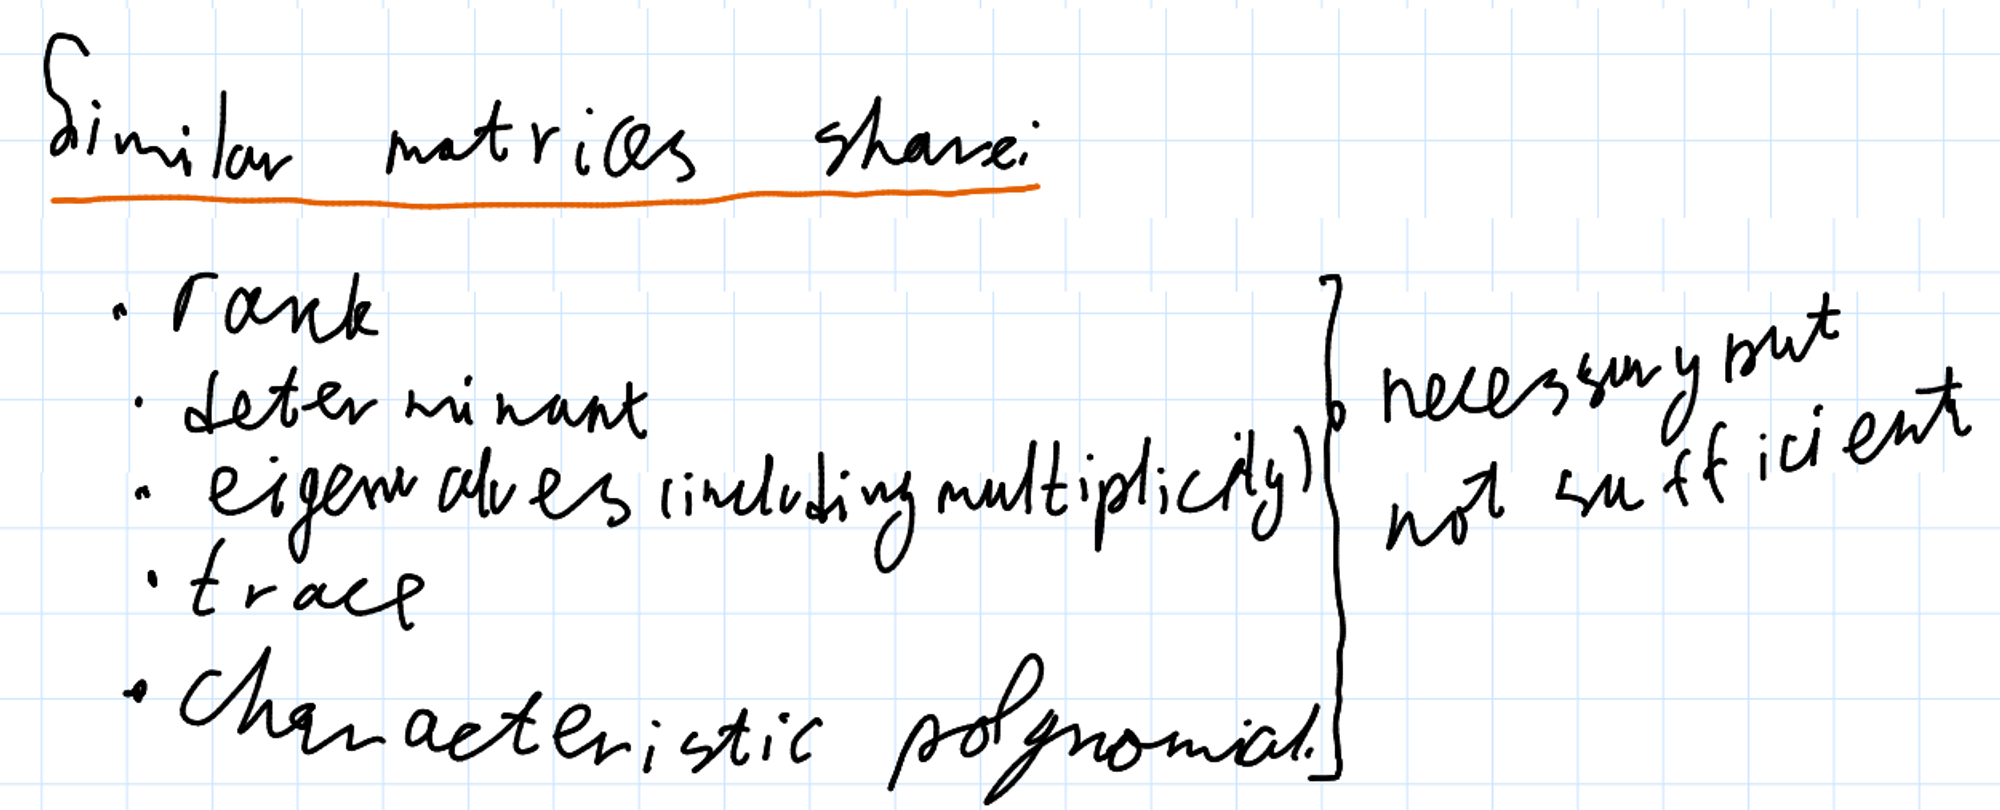 Similar matrices share:
· rank
· determinant
· eigenvalues (including multiplicity)
· trace
· characteristic polynomial.
necessary but
not sufficient